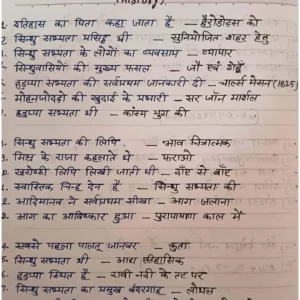 (HISTORY).
1. इतिहास का पिता कहा जाता है - हैरोडोट्स को
2. सिन्धु सभ्यता प्रसिद्ध थी - सुनियोजित शहर हेतु
3. सिन्धु सभ्यता के लोगों का व्यवसाय - व्यापार
4. सिन्धुवासियों की मुख्य फसल - जौ एवं गेहूँ
हड़प्पा सभ्यता की सर्वप्रथम जानकारी दी - चार्ल्स मैसन (1826)
मोहनजोदड़ो की खुदाई के प्रभारी - सर जॉन मार्शल
हड़प्पा सभ्यता थी - कांस्य युग की
सिन्धु सभ्यता की लिपि - भाव चित्रात्मक
मिस्र के राजा कहलाते थे - फराओ
खरोष्ठी लिपि लिखी जाती थी - दाँए से बाँए
स्वास्तिक चिन्ह देन है - सिन्धु सभ्यता की
आदिमानव ने सर्वप्रथम सीखा - आग जलाना
आग का आविष्कार हुआ - पुरापाषाण काल में
सबसे पहला पालतू जानवर - कुत्ता
5. सिन्धु सभ्यता थी - आद्य ऐतिहासिक
6. हड़प्पा स्थित है - रावी नदी के तट पर
7. सिन्धु सभ्यता का प्रमुख बंदरगाह - लोथल